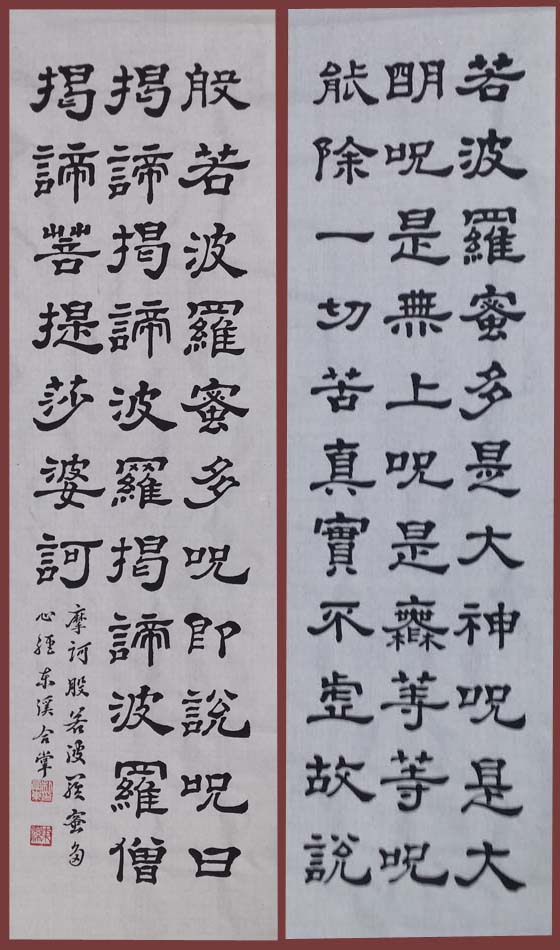 若波羅蜜多是大神呪是大
明呪是無上呪是無等等呪
能除一切苦真實不虛故說
般若波羅蜜多呪即說呪曰
揭諦揭諦波羅揭諦波羅僧
揭諦菩提莎婆訶
摩訶般若波羅蜜多
心經東溪合掌